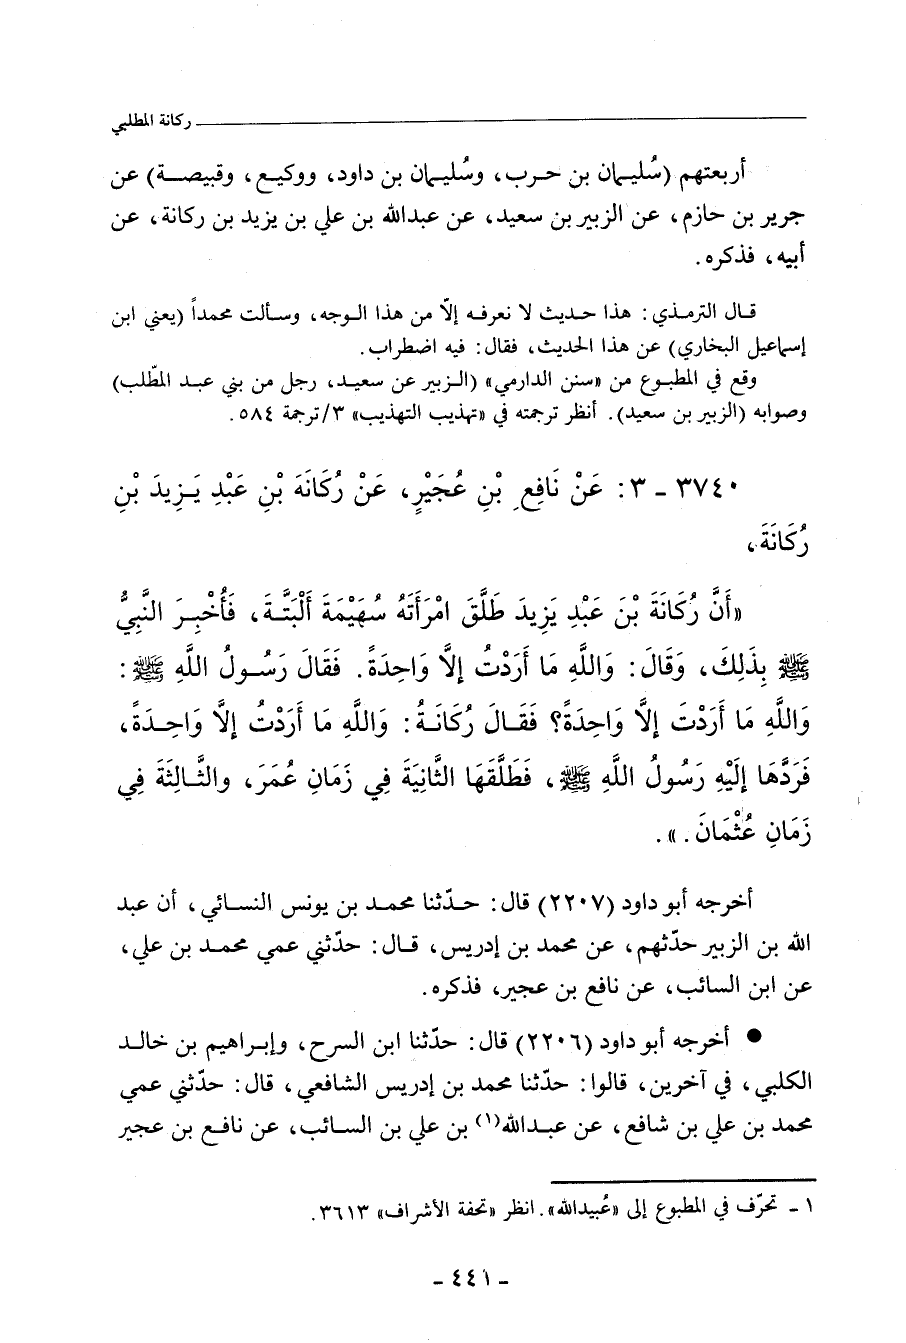 ركانة المطلبي
أربعتهم (سُليمان بن حرب، وسُليمان بن داود، ووكيع، وقبيصة) عن
جرير بن حازم، عن الزبير بن سعيد، عن عبدالله بن علي بن يزيد بن ركانة، عن
أبيه، فذكره.
قال الترمذي: هذا حديث لا نعرفه إلّا من هذا الوجه، وسألت محمداً (يعني ابن
إسماعيل البخاري) عن هذا الحديث، فقال: فيه اضطراب.
وقع في المطبوع من «سنن الدارمي» (الزبير عن سعيد، رجل من بني عبد المطّلب)
وصوابه (الزبير بن سعيد). أنظر ترجمته في «تهذيب التهذيب» ٣/ترجمة ٥٨٤.
٣٧٤٠ - ٣: عَنْ نَافِعِ بْنِ عُجَيْرٍ، عَنْ رُكَانَةَ بْنِ عَبْدِ يَزِيدَ بْنِ
رُكَانَةَ،
«أَنَّ رُكَانَةَ بْنَ عَبْدِ يَزِيدَ طَلَّقَ امْرَأَتَهُ سُهَيْمَةَ أَلْبَتَّةَ، فَأُخْبِرَ النَّبِيُّ
ﷺ بِذَلِكَ، وَقَالَ: وَاللَّهِ مَا أَرَدْتُ إِلَّا وَاحِدَةً. فَقَالَ رَسُولُ اللَّهِ ﷺ:
وَاللَّهِ مَا أَرَدْتَ إِلَّا وَاحِدَةً؟ فَقَالَ رُكَانَةُ: وَاللَّهِ مَا أَرَدْتُ إِلَّا وَاحِدَةً،
فَرَدَّهَا إِلَيْهِ رَسُولُ اللَّهِ ﷺ، فَطَلَّقَهَا الثَّانِيَةَ فِي زَمَانِ عُمَرَ، والثَّالِثَةَ فِي
زَمَانِ عُثْمَانَ.».
أخرجه أبو داود (٢٢٠٧) قال: حدّثنا محمد بن يونس النسائي، أن عبد
الله بن الزبير حدّثهم، عن محمد بن إدريس، قال: حدّثني عمي محمد بن علي،
عن ابن السائب، عن نافع بن عجير، فذكره.
● أخرجه أبو داود (٢٢٠٦) قال: حدّثنا ابن السرح، وإبراهيم بن خالد
الكلبي، في آخرين، قالوا: حدّثنا محمد بن إدريس الشافعي، قال: حدّثني عمي
محمد بن علي بن شافع، عن عبدالله(١) بن علي بن السائب، عن نافع بن عجير
١ - تحرّف في المطبوع إلى «عُبيدالله». انظر «تحفة الأشراف» ٣٦١٣.
- ٤٤١ -